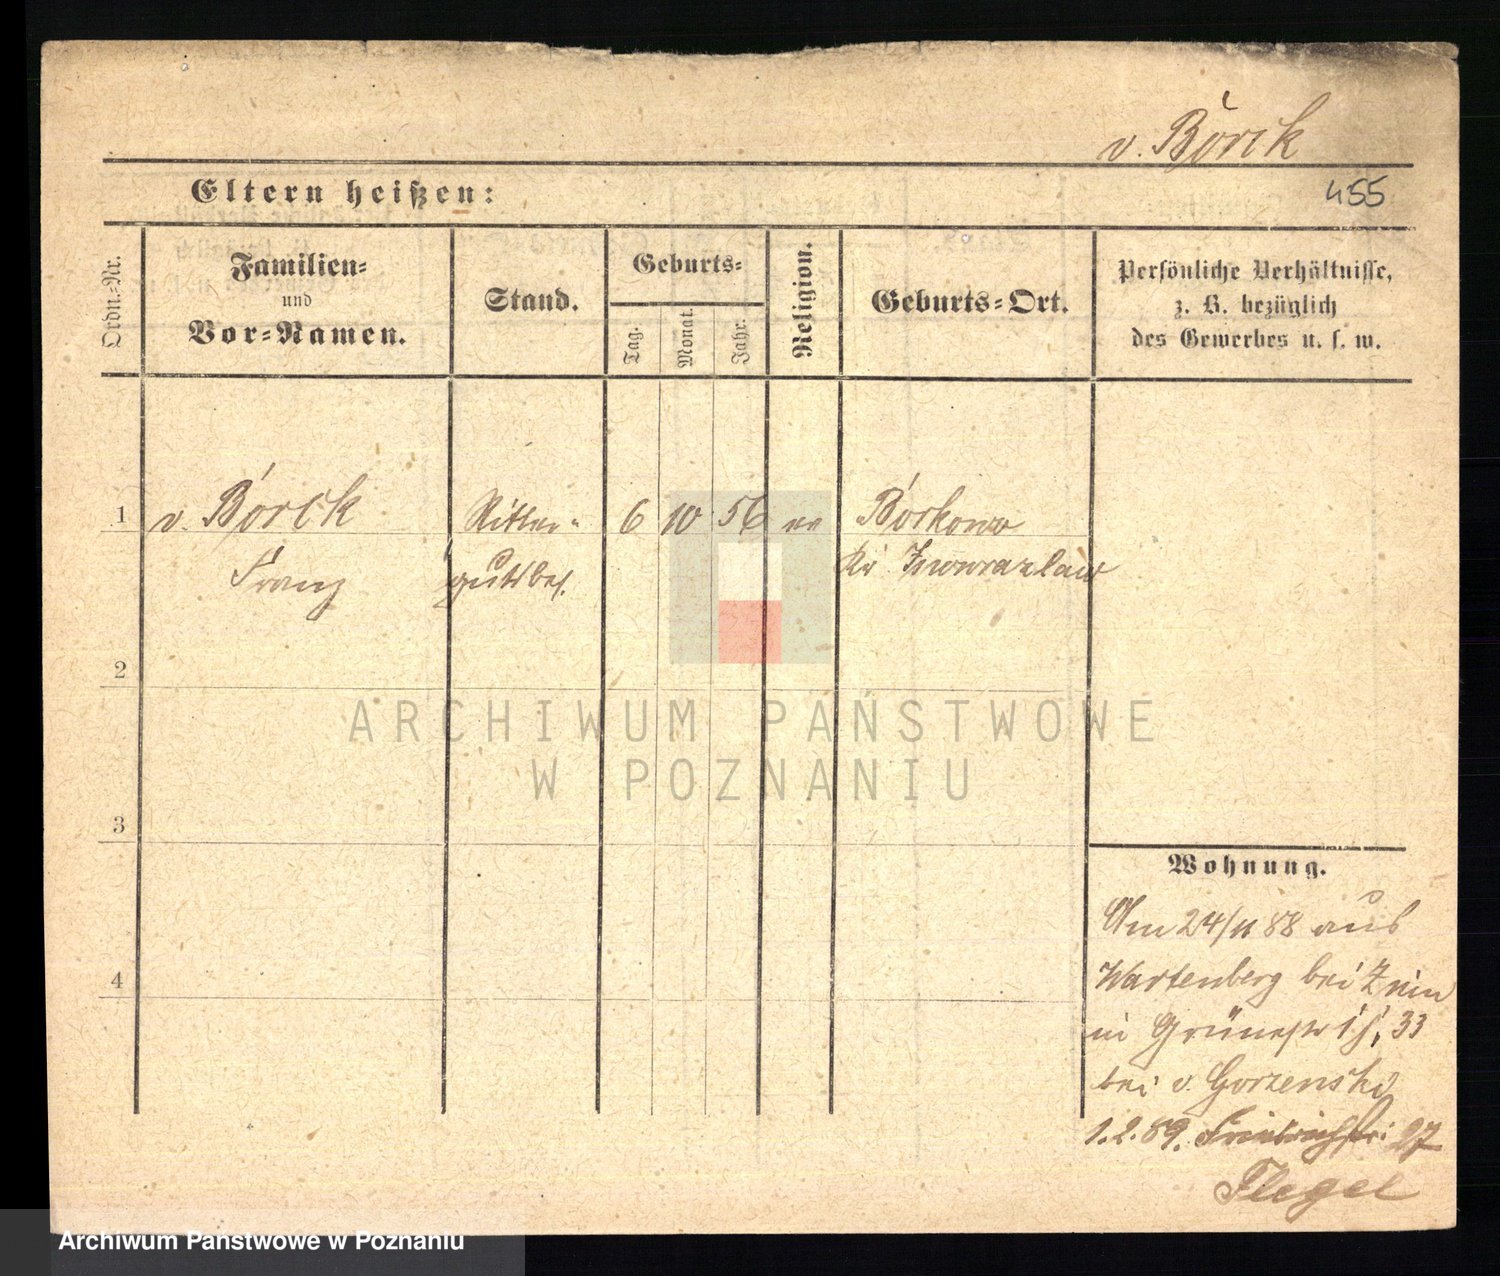 v. Borck
Eltern heißen:
455
Ordn.-Nr.
Familien-
und
Vor-Namen.
Stand.
Geburts-
Tag.
Monat.
Jahr.
Religion.
Geburts-Ort.
Persönliche Verhältnisse,
z. B. bezüglich
des Gewerbes u. s. w.
1 v. Borck Ritter- 6 10 56 Borkowo
Franz gutsbes. Kr Inowrazlaw
2
ARCHIWUM PAŃSTWOWE
W POZNANIU
3
Wohnung.
Am 24/11 88 aus
Wartenberg bei Znin
in Grünestr 33
4
bei v. Gorzenski
1.2.89. Friedrichstr: 27
Flegel
Archiwum Państwowe w Poznaniu